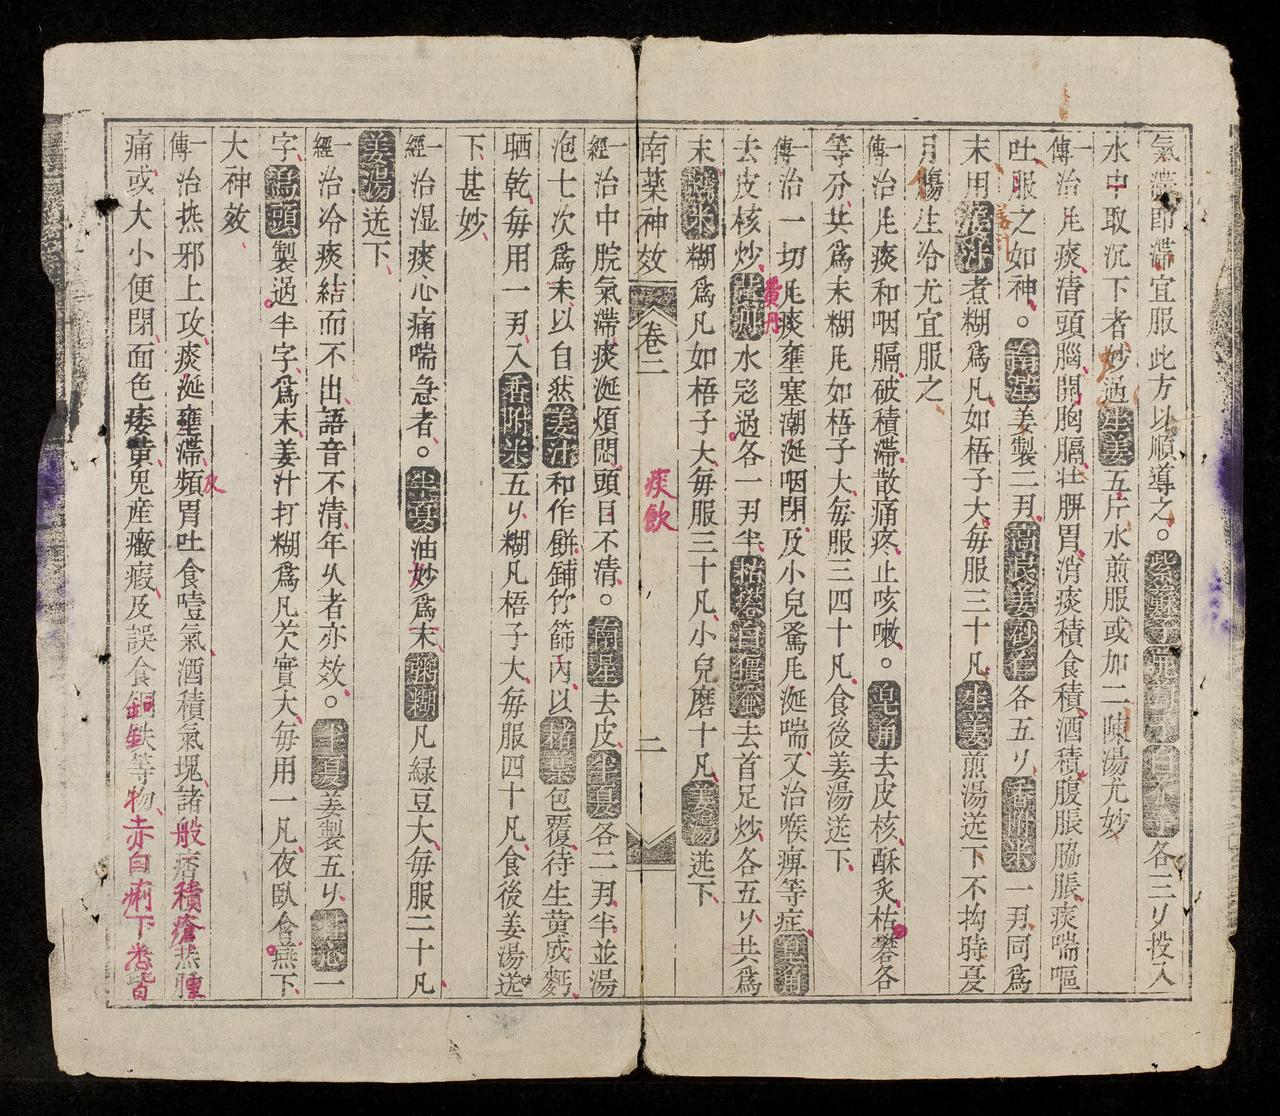 氣滯即滯宜服此方以順導之。紫蘇子 各三〢投入
水中取沉下者炒過生姜五斤水煎服或加二陳湯尤妙
一傳治風痰清頭腦開胸膈壯脾胃消痰積食積酒積腹脹脇脹痰喘嘔
吐服之如神。南星姜製二刄高良姜砂仁各五〢香附米一刄同爲
末用姜汁煮糊爲凡如梧子大每服三十凡生姜煎湯送下不拘時夏
月傷生冷尤宜服之
一傳治风痰和咽膈破積滯散痛疼止咳嗽。皂角去皮核酥炙枯礬各
等分共爲末糊凡如梧子大每服三四十凡食後姜湯送下
一傳治一切风痰壅塞潮涎咽閉及小兒驚风涎喘又治喉痹等症皂角
去皮核炒黃丹水飛過各一刄半枯礬白殭蚕去首足炒各五〢共爲
末 米糊爲凡如梧子大每服三十凡小兒磨十凡姜湯送下
南薬神效 卷二 痰飲 二
一經治中脘氣滯痰涎煩悶頭目不清。南星去皮半夏各二刄半並湯
泡七次爲末以自然姜汁和作餅鋪竹篩內以楮葉包覆待生黄成麪
晒乾每用一刄入香附米五〢糊凡梧子大每服四十凡食後姜湯送
下甚妙
一經治湿痰心痛喘急者。半夏油炒爲末粥糊凡綠豆大每服二十凡
姜湯送下
一經治冷痰結而不出語音不清年久者亦效。半夏姜製五〢 一
字烏頭製過半字爲末姜汁打糊爲凡芡實大每用一凡夜臥含嚥下
大神效
一傳治热邪上攻痰涎壅滯頻胃吐食噎氣酒積氣塊諸般 積瘡热腫
痛或大小便閉面色痿黃鬼産癥瘕及誤食銅鉄等物赤白痢下悉皆